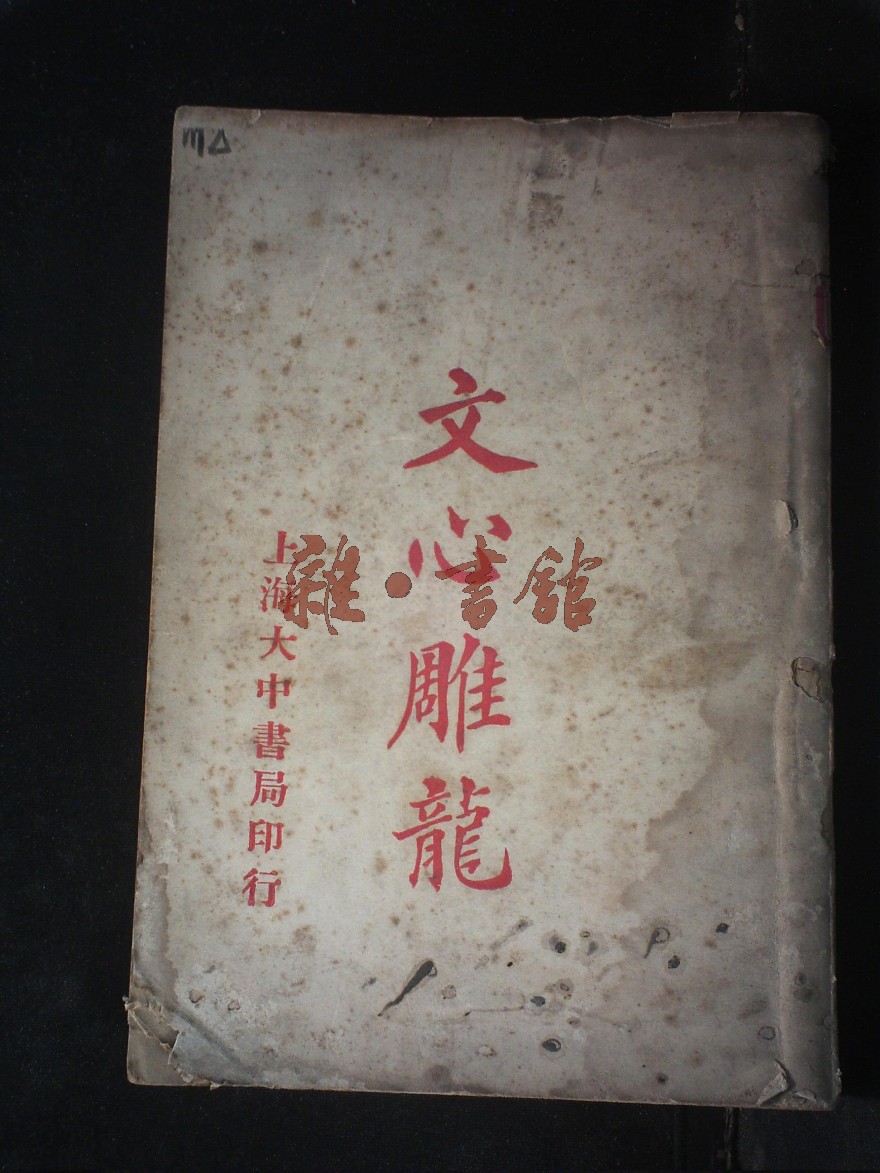 文心雕龍
上海大中書局印行
雜·書館